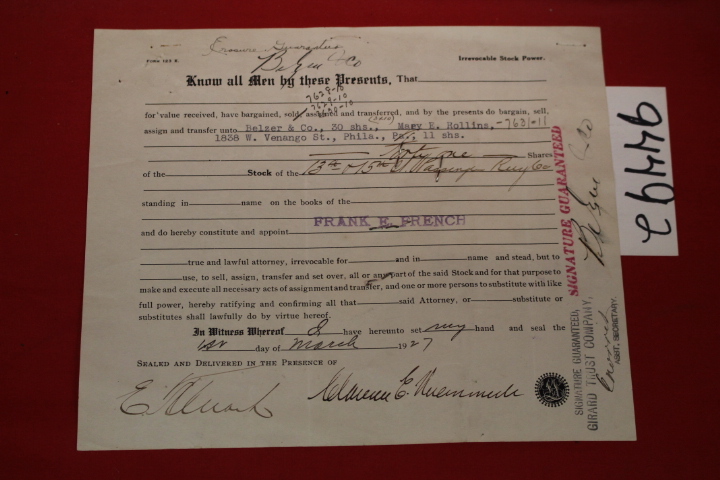 Erasure Guaranteed
Belzer & Co
FORM 163 B. Irrevocable Stock Power.
Know all Men by these Presents, That
7638-10
9-10
for value received, have bargained, sold, assigned and transferred, and by the presents do bargain, sell,
assign and transfer unto Belzer & Co., 30 shs., Mary E. Rollins, -7631-11
1838 W. Venango St., Phila., Pa., 11 shs.
Forty one Shares
of the Stock of the 13th & 15th St Passenger Rwy Co
standing in name on the books of the
FRANK E. FRENCH
and do hereby constitute and appoint
true and lawful attorney, irrevocable for and in name and stead, but to
use, to sell, assign, transfer and set over, all or any part of the said Stock and for that purpose to
make and execute all necessary acts of assignment and transfer, and one or more persons to substitute with like
full power, hereby ratifying and confirming all that said Attorney, or substitute or
substitutes shall lawfully do by virtue hereof.
In Witness Whereof I have hereunto set my hand and seal the
1st day of March 1927
SEALED AND DELIVERED IN THE PRESENCE OF
Clarence E.
SIGNATURE GUARANTEED
Belzer & Co
SIGNATURE GUARANTEED,
GIRARD TRUST COMPANY,
ASST. SECRETARY.
94492